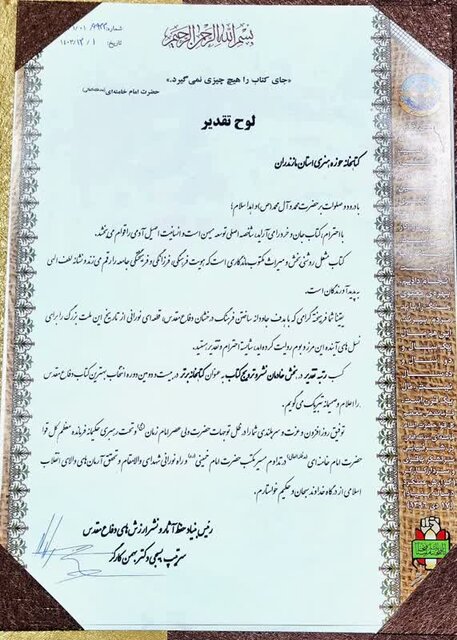 بسم الله الرحمن الرحیم
تاریخ: ۱۴۰۳/۱۲/۱
«جای کتاب را هیچ چیزی نمی گیرد.»
حضرت امام خامنه‌ای
لوح تقدیر
کتابخانه حوزه هنری استان مازندران
با درود و صلوات بر حضرت محمد و آل محمد(ص) و اهداء سلام؛
با احترام، کتاب جان و خرد را می آراید، شاخصه اصلی توسعه میهن است و انسانیت اصیل آدمی را قوام می بخشد.
کتاب مشعل روشنی بخش و میراث مکتوب ماندگاری است که هویت فرهنگی، فرزانگی و فرهیختگی جامعه را رقم می زند و نشانه لطف الهی
پدیدآورندگان است.
یقینا شما فرهیخته گرامی که با هدف جاودانه ساختن فرهنگ درخشان دفاع مقدس، قطعه ای نورانی از تاریخ این ملت بزرگ را برای
نسل های آینده این مرز و بوم روایت کرده اید، شایسته احترام و تقدیر هستید.
کسب رتبه تقدیر در بخش خادمان نشر و ترویج کتاب به عنوان کتابخانه برتر در بیست و دومین دوره انتخاب بهترین کتاب دفاع مقدس
را اعلام و صمیمانه تبریک می گویم.
توفیق روزافزون و عزت و سربلندی شما را در ظل توجهات حضرت ولی عصر امام زمان و تحت رهبری حکیمانه فرمانده معظم کل قوا
حضرت امام خامنه ای در تداوم مسیر مکتب حضرت امام خمینی و راه نورانی شهدای والامقام و تحقق آرمان های والای انقلاب
اسلامی از درگاه خداوند سبحان و حکیم خواستارم.
رئیس بنیاد حفظ آثار و نشر ارزش های دفاع مقدس
سرتیپ بسیجی دکتر بهمن کارگر